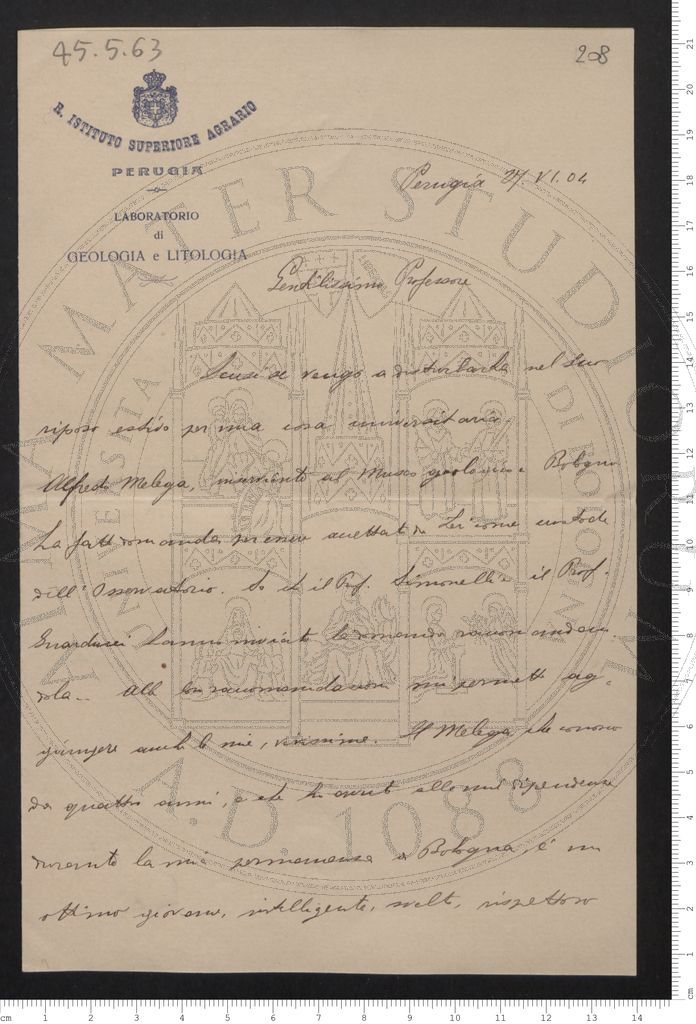 45.5.63
208
R. ISTITUTO SUPERIORE AGRARIO
PERUGIA
LABORATORIO
di
GEOLOGIA e LITOLOGIA
Perugia 27.VI.04
Gentilissimo Professore
Scusi se vengo a disturbarla nel Suo
riposo estivo per una cosa universitaria.
Alfredo Melega, inserviente al Museo geologico Bologna
La fatt domanda per essere accettato da Lei come custode
dell'Osservatorio. So che il Prof. Simonelli e il Prof.
Guarducci hanno inviato la domanda raccomandan-
dola. Alle loro raccomandazioni mi permetto ag-
giungere anche le mie, vivissime. Il Melega, che conosco
da quattro anni, e che ho avuto alla mia dipendenza
durante la mia permanenza a Bologna, è un
ottimo giovane, intelligente, svelto, rispettoso
ALMA MATER STUDIORUM
UNIVERSITÀ DI BOLOGNA
A.D. 1088